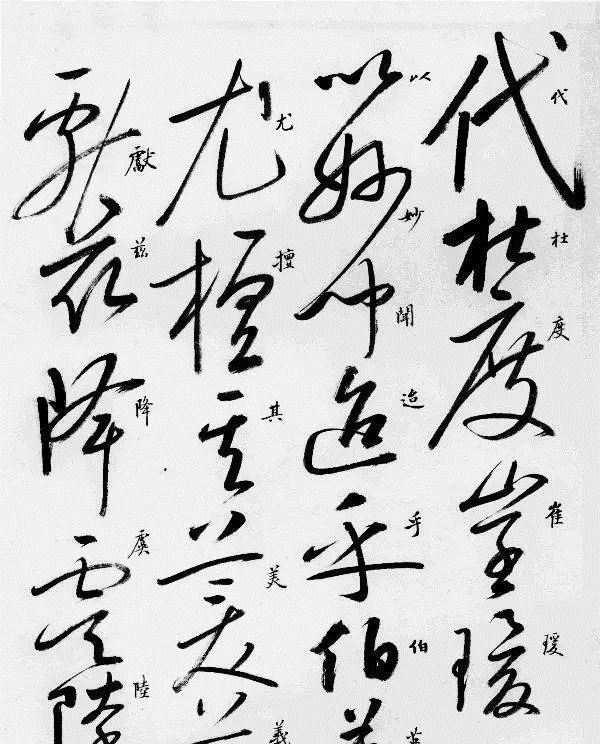 代杜度崔瑗
代杜度崔瑗
以妙聞迨乎伯
以妙聞迨乎伯
尤擅其美
尤擅其美羲
獻茲降虞陸
獻茲降虞陸